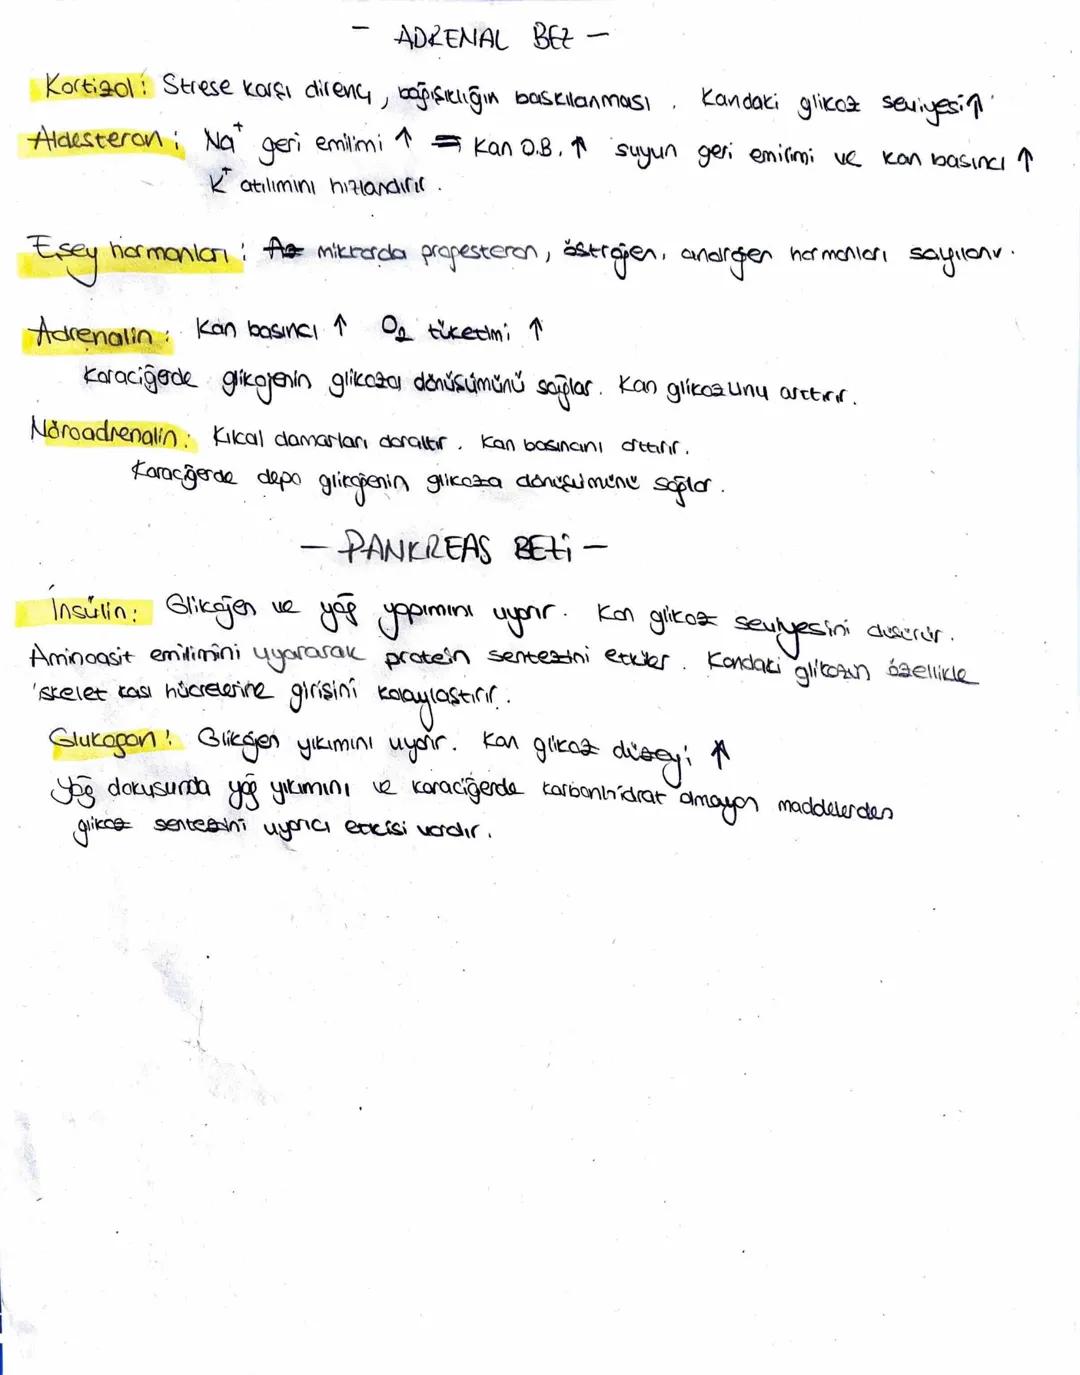 - ADRENAL BEZ -
Kortizol: Strese karşı direnç, bağışıklığın baskılanması. Kandaki glikoz seviyesi↑
Aldesteron: Na⁺ geri emilimi ↑ = Kan O.B. ↑ suyun geri emilimi ve kan basıncı ↑
K⁺ atılımını hızlandırır.
Eşey hormonları: Az miktarda progesteron, östrojen, androjen hormonları sayılanır.
Adrenalin: Kan basıncı ↑ O₂ tüketimi ↑
Karaciğerde glikojenin glikoza dönüşümünü sağlar. Kan glikozunu arttırır.
Nöroadrenalin: Kılcal damarları daraltır. Kan basıncını arttırır.
Karaciğerde depo glikojenin glikoza dönüşümünü sağlar.
- PANKREAS BEZİ -
İnsülin: Glikojen ve yağ yapımını uyarır. Kan glikoz seviyesini düşürür.
Aminoasit emilimini uyararak protein sentezini etkiler. Kandaki glikozun özellikle
iskelet kası hücrelerine girişini kolaylaştırır.
Glukagon: Glikojen yıkımını uyarır. Kan glikoz düzeyi ↑
Yağ dokusunda yağ yıkımını ve karaciğerde karbonhidrat olmayan maddelerden
glikoz sentezini uyarıcı etkisi vardır.